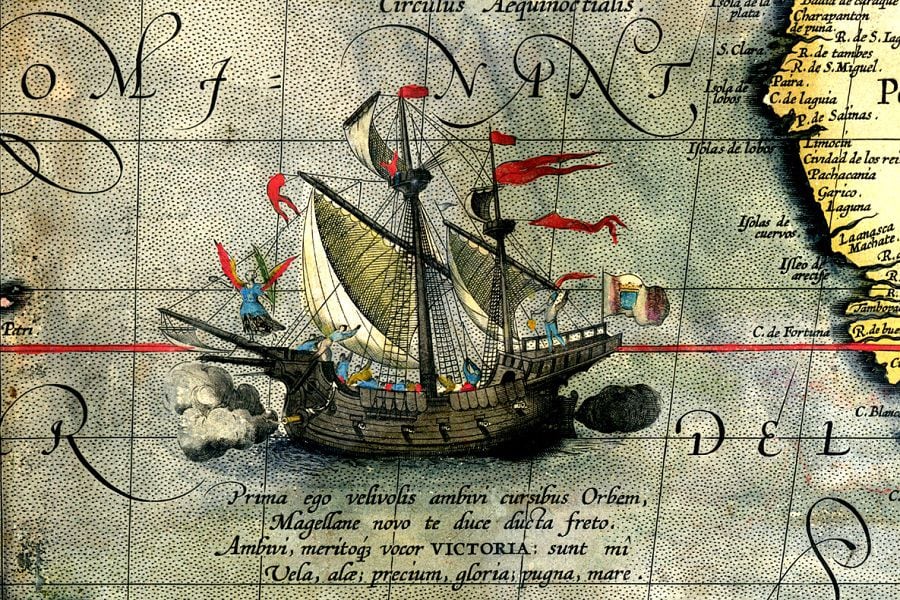 Circulus Aequinoctialis.
Isola de la
plata
Baia de caraque
Charapanton
de puna.
R. de S. Iag
S. Clara
R. de tambes
R. de S. Miguel.
Paira.
Isola de
lobos
C. de laguia
P. de Salinas.
OMI= NANT
Isolas de lobos
Limocin
Cividad de los rei
Pachacania
Garico.
Laguna
Isolas de
cuervos
Laanasca
Machate.
Isleo de
arecife
R.
Tambopa
R. de bue
C. de Fortuna
Petri
C. Blanc
R DEL
Prima ego velivolis ambivi cursibus Orbem,
Magellane novo te duce ducta freto.
Ambivi, meritoq₃ vocor VICTORIA: sunt mî
Vela, alæ; precium, gloria; pugna, mare.